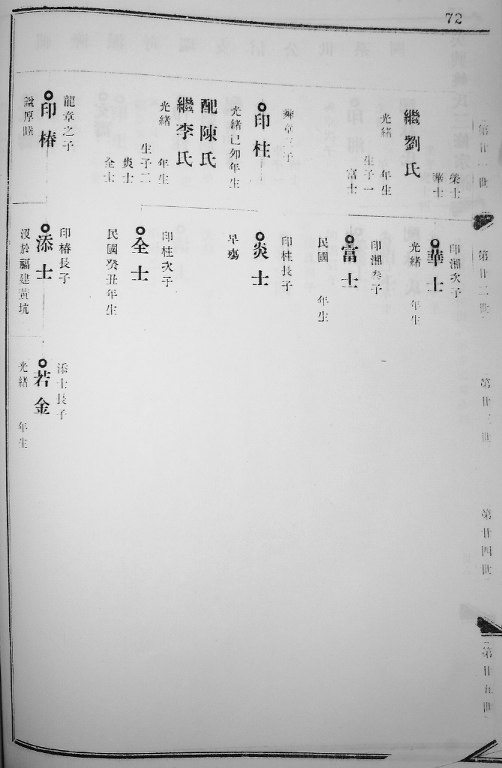 72
第廿一世
第廿二世
第廿三世
第廿四世
第廿五世
榮士
華士
繼劉氏
光緒　年生
生子一
富士
舞章三子
印柱
光緒己卯年生
配陳氏
繼李氏
光緒　年生
生子二
炎士
全士
龍章之子
印椿
諡厚睦
印湘次子
華士
光緒　年生
印湘叁子
富士
民國　年生
印柱長子
炎士
早殤
印柱次子
全士
民國癸丑年生
印椿長子
添士
沒於福建黃坑
添士長子
若金
光緒　年生